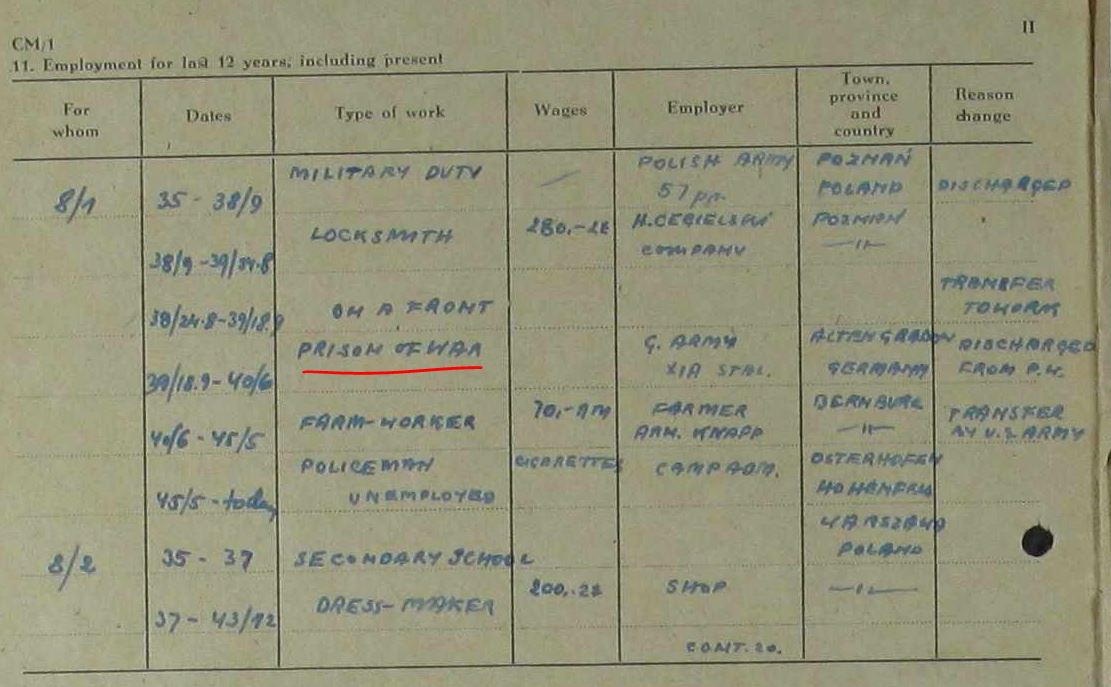 II
CM/1
11. Employment for last 12 years, including present
For whom
Dates
Type of work
Wages
Employer
Town, province and country
Reason change
8/1
35 - 38/9
MILITARY DUTY
—
POLISH ARMY
57 pp.
POZNAŃ
POLAND
DISCHARGED
38/9 - 39/24.8
LOCKSMITH
280,-
H. CEGIELSKI
COMPANY
POZNAN
—11—
39/24.8 - 39/18.9
ON A FRONT
TRANSFER
TO WORK
39/18.9 - 40/6
PRISON OF WAR
G. ARMY
XIA STAL.
ALTENGRABOW
GERMANY
DISCHARGED
FROM P.W.
40/6 - 45/5
FARM-WORKER
70,- RM
FARMER
ARN. KNAPP
BERNBURG
—11—
TRANSFER
BY U.S ARMY
45/5 - today
POLICEMAN
UNEMPLOYED
CIGARETTES
CAMP ADM.
OSTERHOFEN
HOHENFELS
8/2
35 - 37
SECONDARY SCHOOL
WARSZAWA
POLAND
37 - 43/12
DRESS-MAKER
200,-
SHOP
—11—
CONT. 20.